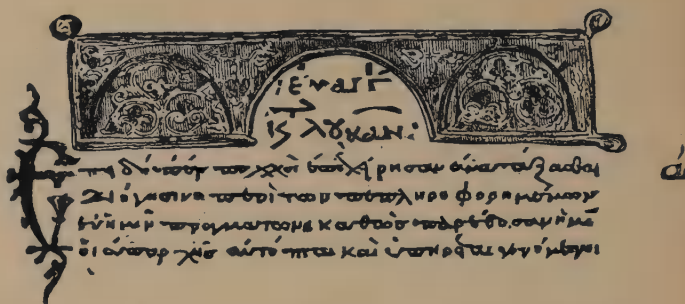 εὐαγγ
λουκᾶν:
Ἐπειδήπερ πολλοὶ ἐπεχείρησαν ἀνατάξασθαι
διήγησιν περὶ τῶν πεπληροφορημένων
ἐν ἡμῖν πραγμάτων καθὼς παρέδοσαν ἡμῖ
οἱ ἀπαρχῆς αὐτόπται καὶ ὑπηρέται γενόμενοι